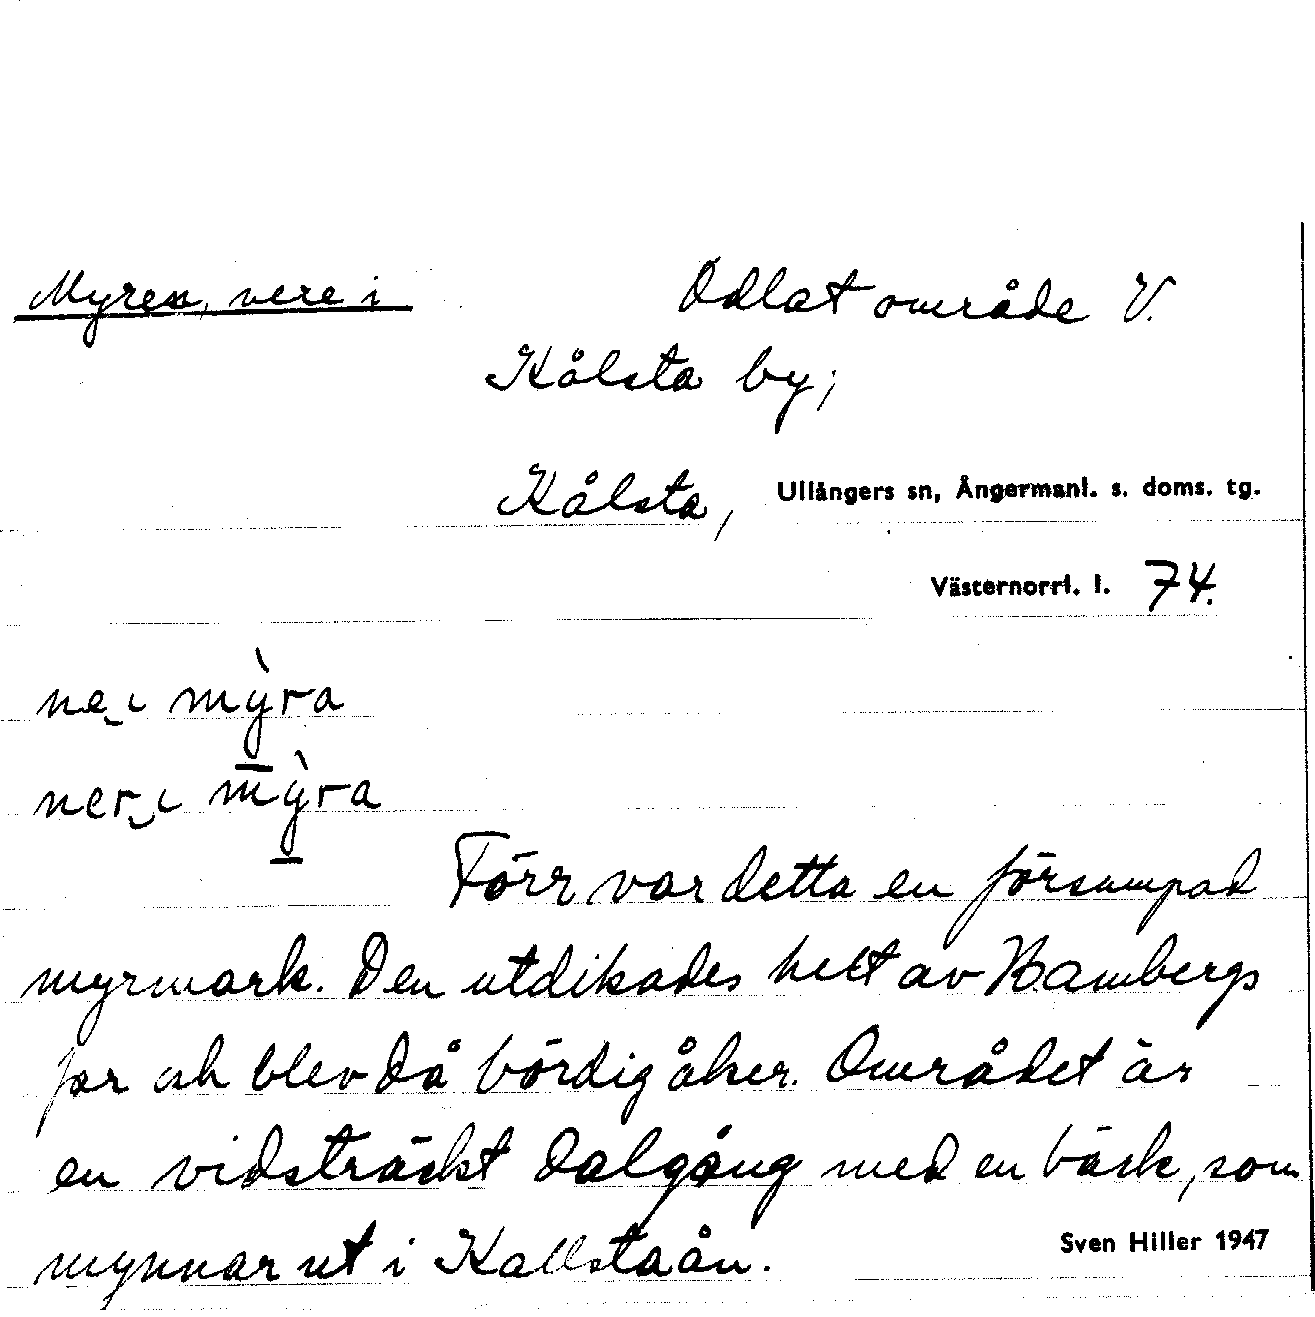 Myren, nere i
Odlat område V.
Kålsta by;
Kålsta, Ullångers sn, Ångermanl. s. doms. tg.
Västernorrl. l. 74.
ne‿i mỳra
ner‿i mỳra
Förr var detta en försumpad
myrmark. Den utdikades helt av Hambergs
far och blev då bördig åker. Området är
en vidsträckt dalgång med en bäck, som
mynnar ut i Kallstaån.
Sven Hiller 1947